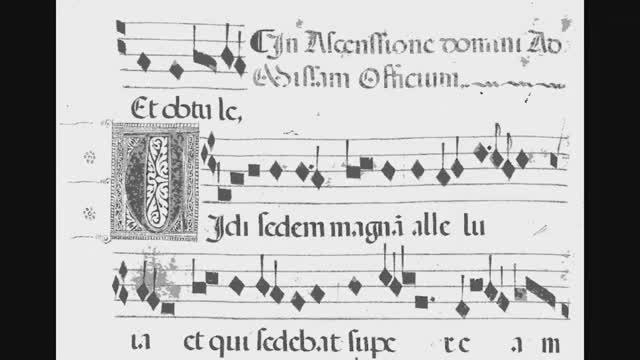 In Ascenssione domini Ad
Missam Officium.
Et obtu le,
VJdi sedem magnã alle lu
ia et qui sedebat supe r e a m